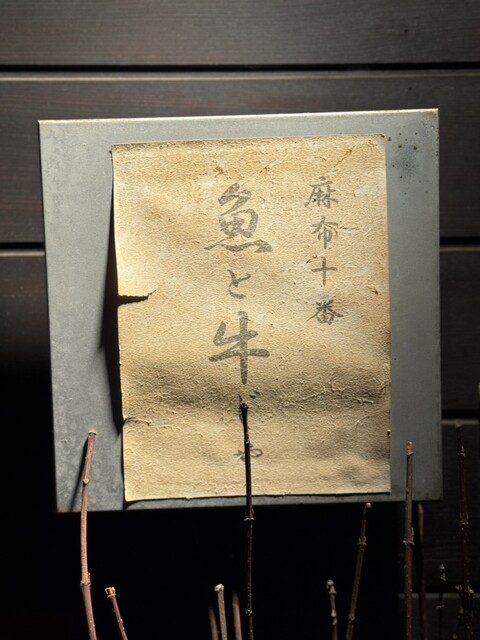 麻布十番
魚と牛 や